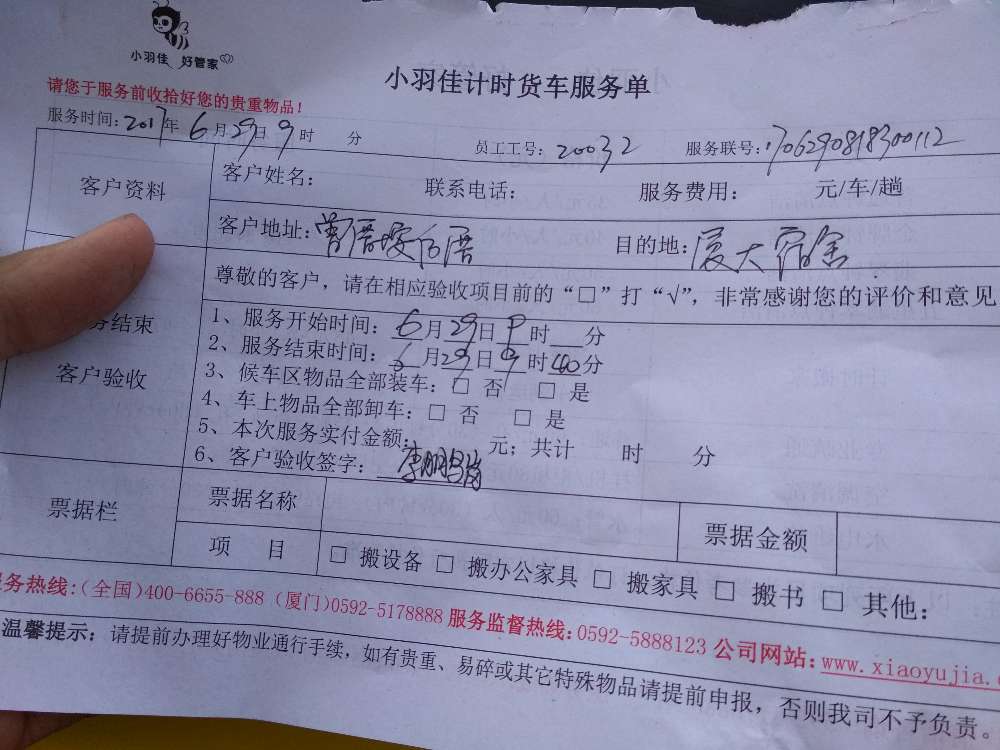 小羽佳 好管家
小羽佳计时货车服务单
请您于服务前收拾好您的贵重物品！
服务时间：2017年6月29日9时 分 员工工号：20032 服务联号：1706290818300112
客户资料
客户姓名： 联系电话： 服务费用： 元/车/趟
客户地址：曾厝垵 目的地：厦大宿舍
尊敬的客户，请在相应验收项目前的“□”打“√”，非常感谢您的评价和意见
务结束
客户验收
1、服务开始时间：6月29日9时 分
2、服务结束时间：6月29日9时40分
3、候车区物品全部装车：□ 否 □ 是
4、车上物品全部卸车：□ 否 □ 是
5、本次服务实付金额： 元；共计 时 分
6、客户验收签字：
票据栏
票据名称 票据金额
项 目 □ 搬设备 □ 搬办公家具 □ 搬家具 □ 搬书 □ 其他：
务热线：（全国）400-6655-888（厦门）0592-5178888 服务监督热线：0592-5888123 公司网站：www.xiaoyujia.c
温馨提示：请提前办理好物业通行手续，如有贵重、易碎或其它特殊物品请提前申报，否则我司不予负责。